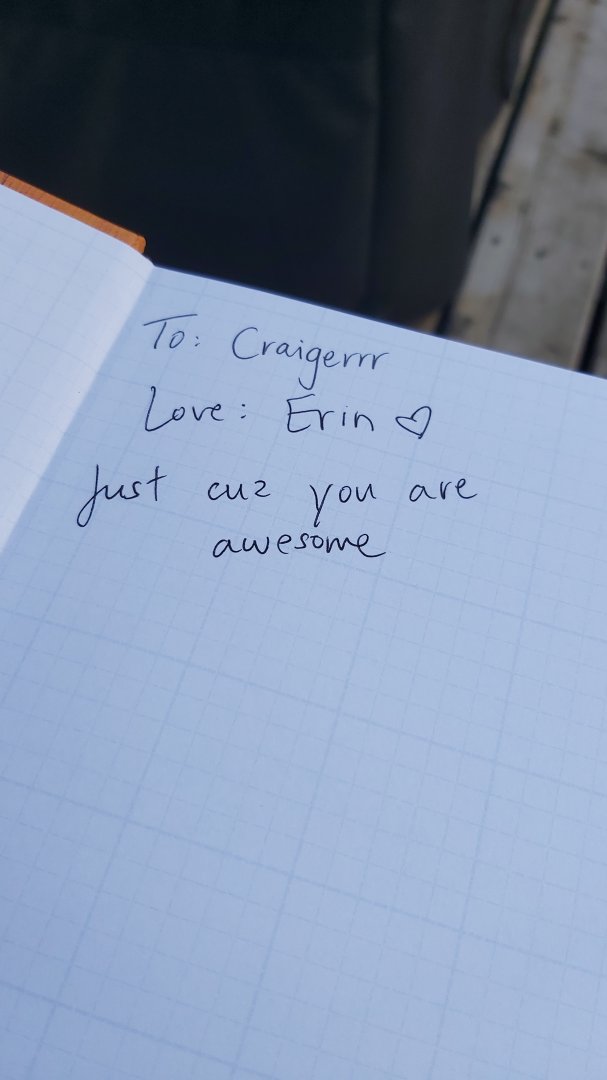 To: Craigerrr
Love: Erin ♡
Just cuz you are
awesome